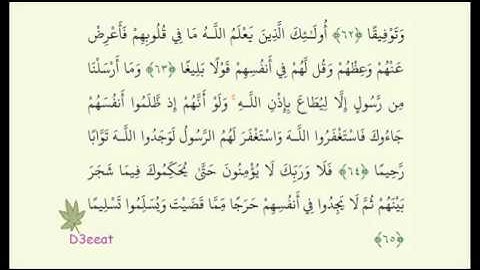 وَتَوْفِيقًا ﴿٦٢﴾ أُولَـٰئِكَ الَّذِينَ يَعْلَمُ اللَّـهُ مَا فِي قُلُوبِهِمْ فَأَعْرِضْ
عَنْهُمْ وَعِظْهُمْ وَقُل لَّهُمْ فِي أَنفُسِهِمْ قَوْلًا بَلِيغًا ﴿٦٣﴾ وَمَا أَرْسَلْنَا
مِن رَّسُولٍ إِلَّا لِيُطَاعَ بِإِذْنِ اللَّـهِ ۚ وَلَوْ أَنَّهُمْ إِذ ظَّلَمُوا أَنفُسَهُمْ
جَاءُوكَ فَاسْتَغْفَرُوا اللَّـهَ وَاسْتَغْفَرَ لَهُمُ الرَّسُولُ لَوَجَدُوا اللَّـهَ تَوَّابًا
رَّحِيمًا ﴿٦٤﴾ فَلَا وَرَبِّكَ لَا يُؤْمِنُونَ حَتَّىٰ يُحَكِّمُوكَ فِيمَا شَجَرَ
بَيْنَهُمْ ثُمَّ لَا يَجِدُوا فِي أَنفُسِهِمْ حَرَجًا مِّمَّا قَضَيْتَ وَيُسَلِّمُوا تَسْلِيمًا
﴿٦٥﴾
D3eeat